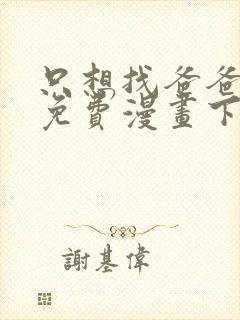 只想找爸爸
免費漫畫下
謝基偉